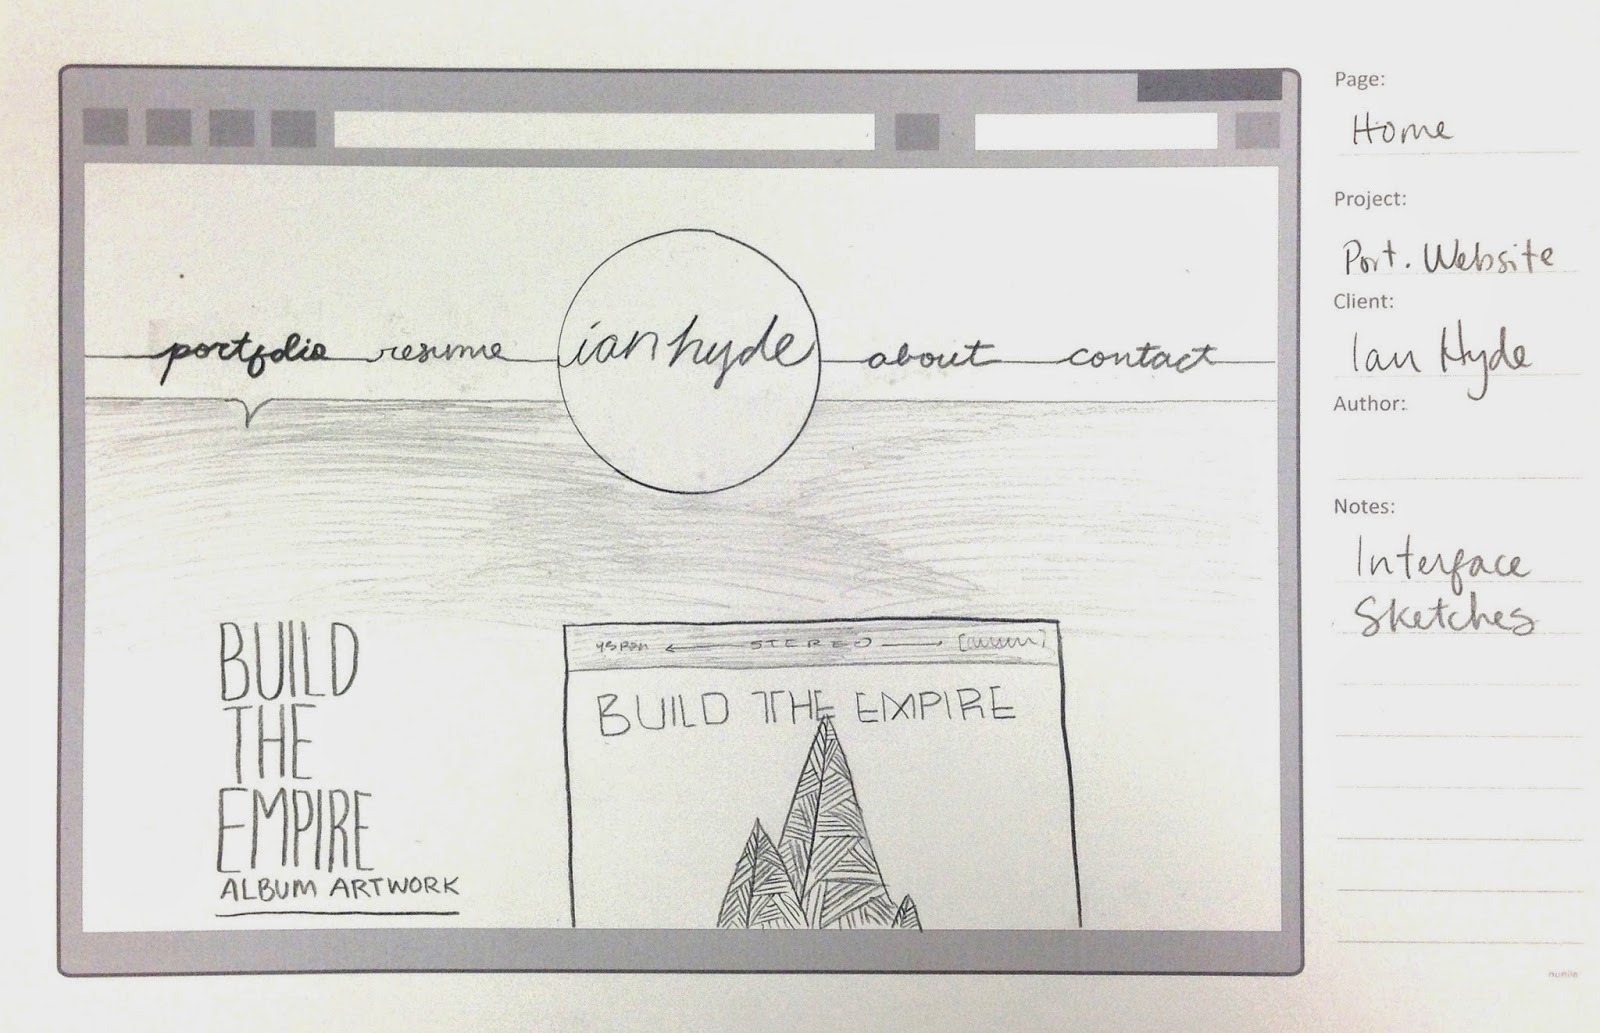 portfolio resume ian hyde about contact
BUILD
THE
EMPIRE
ALBUM ARTWORK
45 RPM STEREO
BUILD THE EMPIRE
Page:
Home
Project:
Port. Website
Client:
Ian Hyde
Author:
Notes:
Interface
Sketches